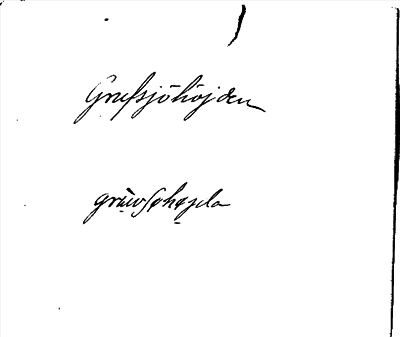 Grufsjöhöjden
gruvſøhøjda